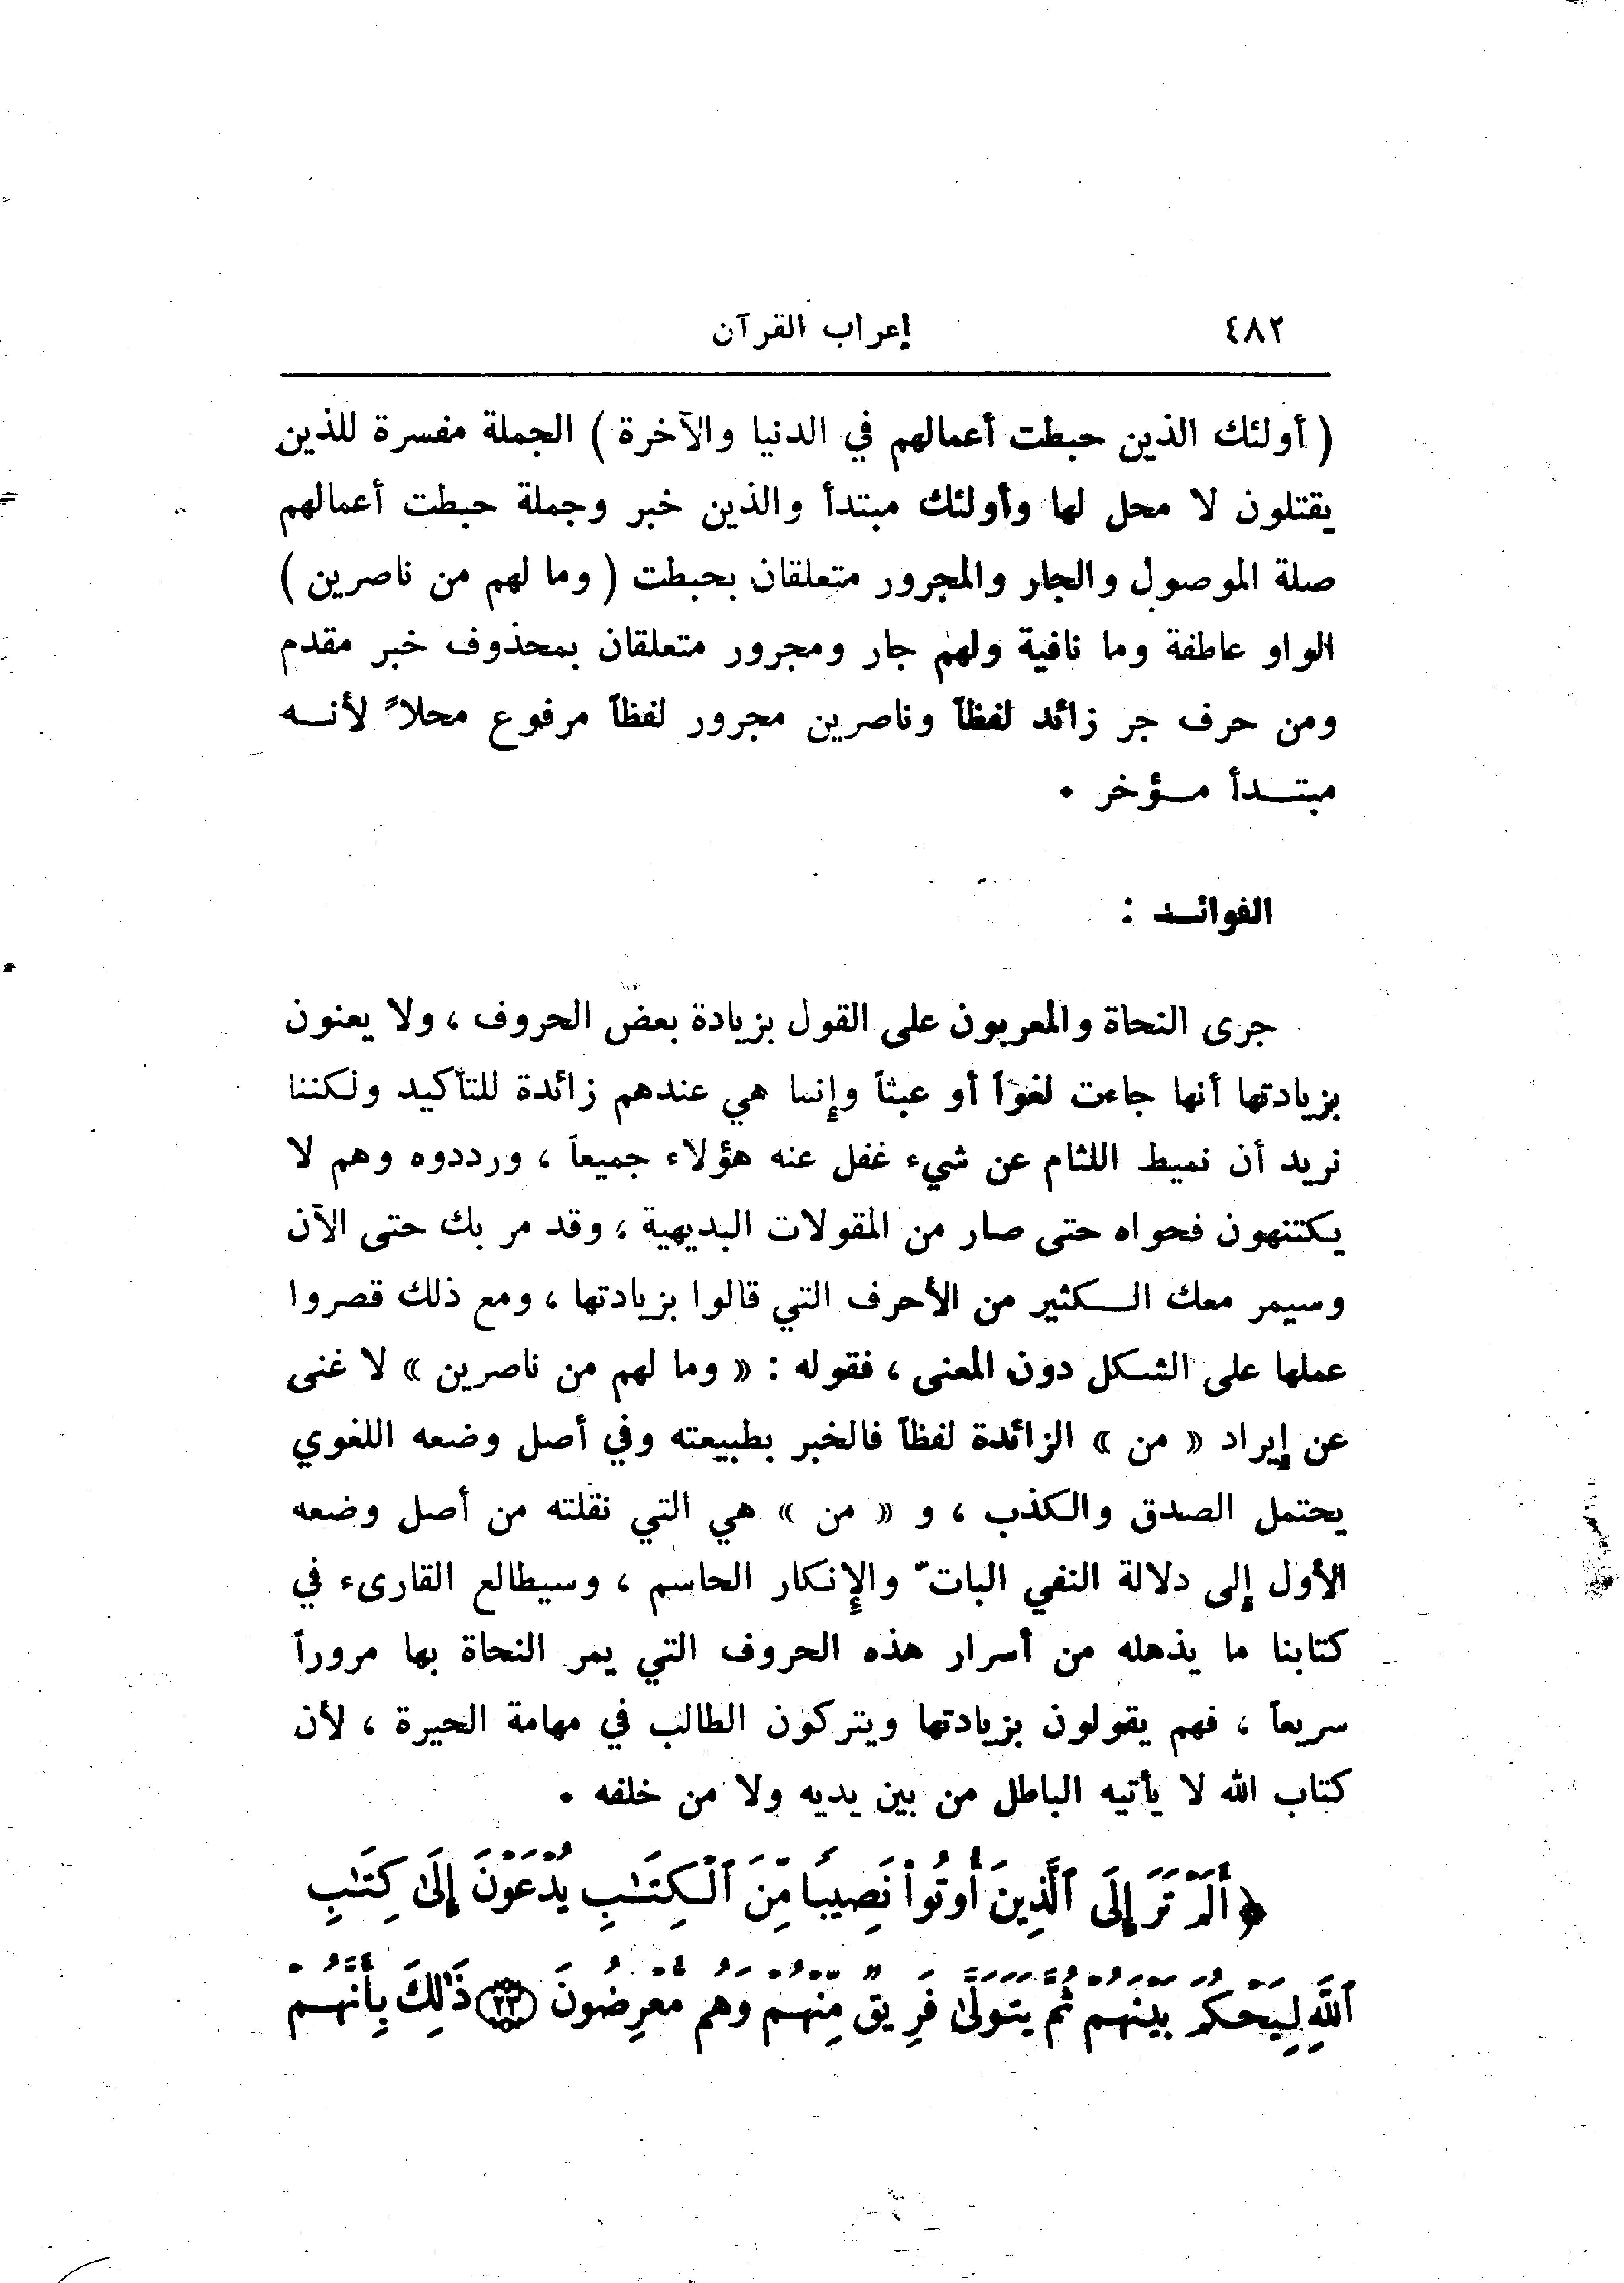 ٤٨٢ إعراب القرآن
( أولئك الذين حبطت أعمالهم في الدنيا والآخرة ) الجملة مفسرة للذين
يقتلون لا محل لها وأولئك مبتدأ والذين خبر وجملة حبطت أعمالهم
صلة الموصول والجار والمجرور متعلقان بحبطت ( وما لهم من ناصرين )
الواو عاطفة وما نافية ولهم جار ومجرور متعلقان بمحذوف خبر مقدم
ومن حرف جر زائد لفظاً وناصرين مجرور لفظاً مرفوع محلاً لأنــه
مبتــدأ مــؤخر .
الفوائــد :
جرى النحاة والمعربون على القول بزيادة بعض الحروف ، ولا يعنون
بزيادتها أنها جاءت لغوًا أو عبثاً وإنما هي عندهم زائدة للتأكيد ولكننا
نريد أن نميط اللثام عن شيء غفل عنه هؤلاء جميعاً ، ورددوه وهم لا
يكتنهون فحواه حتى صار من المقولات البديهية ، وقد مر بك حتى الآن
وسيمر معك الــكثير من الأحرف التي قالوا بزيادتها ، ومع ذلك قصروا
عملها على الشكل دون المعنى ، فقوله : « وما لهم من ناصرين » لا غنى
عن إيراد « من » الزائدة لفظاً فالخبر بطبيعته وفي أصل وضعه اللغوي
يحتمل الصدق والكذب ، و « من » هي التي نقلته من أصل وضعه
الأول إلى دلالة النفي الباتّ والإنكار الحاسم ، وسيطالع القارىء في
كتابنا ما يذهله من أسرار هذه الحروف التي يمر النحاة بها مروراً
سريعاً ، فهم يقولون بزيادتها ويتركون الطالب في مهامة الحيرة ، لأن
كتاب الله لا يأتيه الباطل من بين يديه ولا من خلفه .
﴿أَلَمْ تَرَ إِلَى ٱلَّذِينَ أُوتُوا۟ نَصِيبًا مِّنَ ٱلْكِتَـٰبِ يُدْعَوْنَ إِلَىٰ كِتَـٰبِ
ٱللَّهِ لِيَحْكُمَ بَيْنَهُمْ ثُمَّ يَتَوَلَّىٰ فَرِيقٌ مِّنْهُمْ وَهُم مُّعْرِضُونَ ٢٣ ذَٰلِكَ بِأَنَّهُمْ